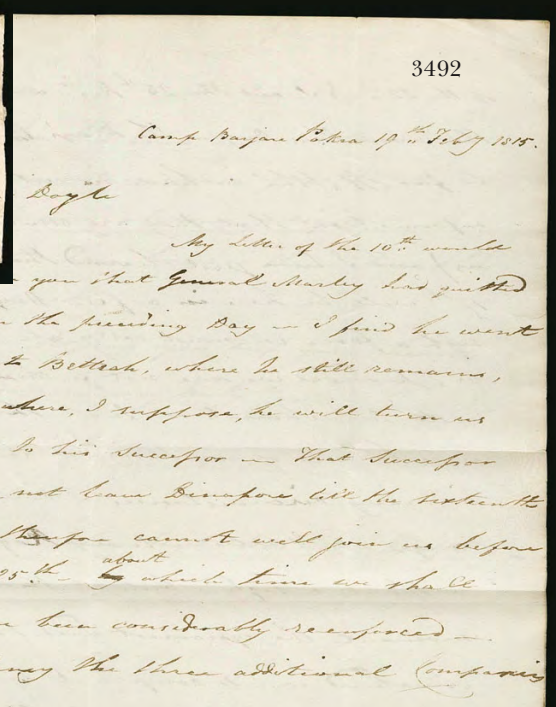 3492
Camp Barjare Pokra 19th Feby 1815.
Doyle
My Letter of the 10th would
you that General Marley had quitted
the preceding Day — I find he went
to Bettiah, where he still remains,
where, I suppose, he will turn us
to his Successor — That Successor
not leave Dinapore till the sixteenth
therefore cannot well join us before
about
25th — which time we shall
been considerably reenforced —
the three additional Companies